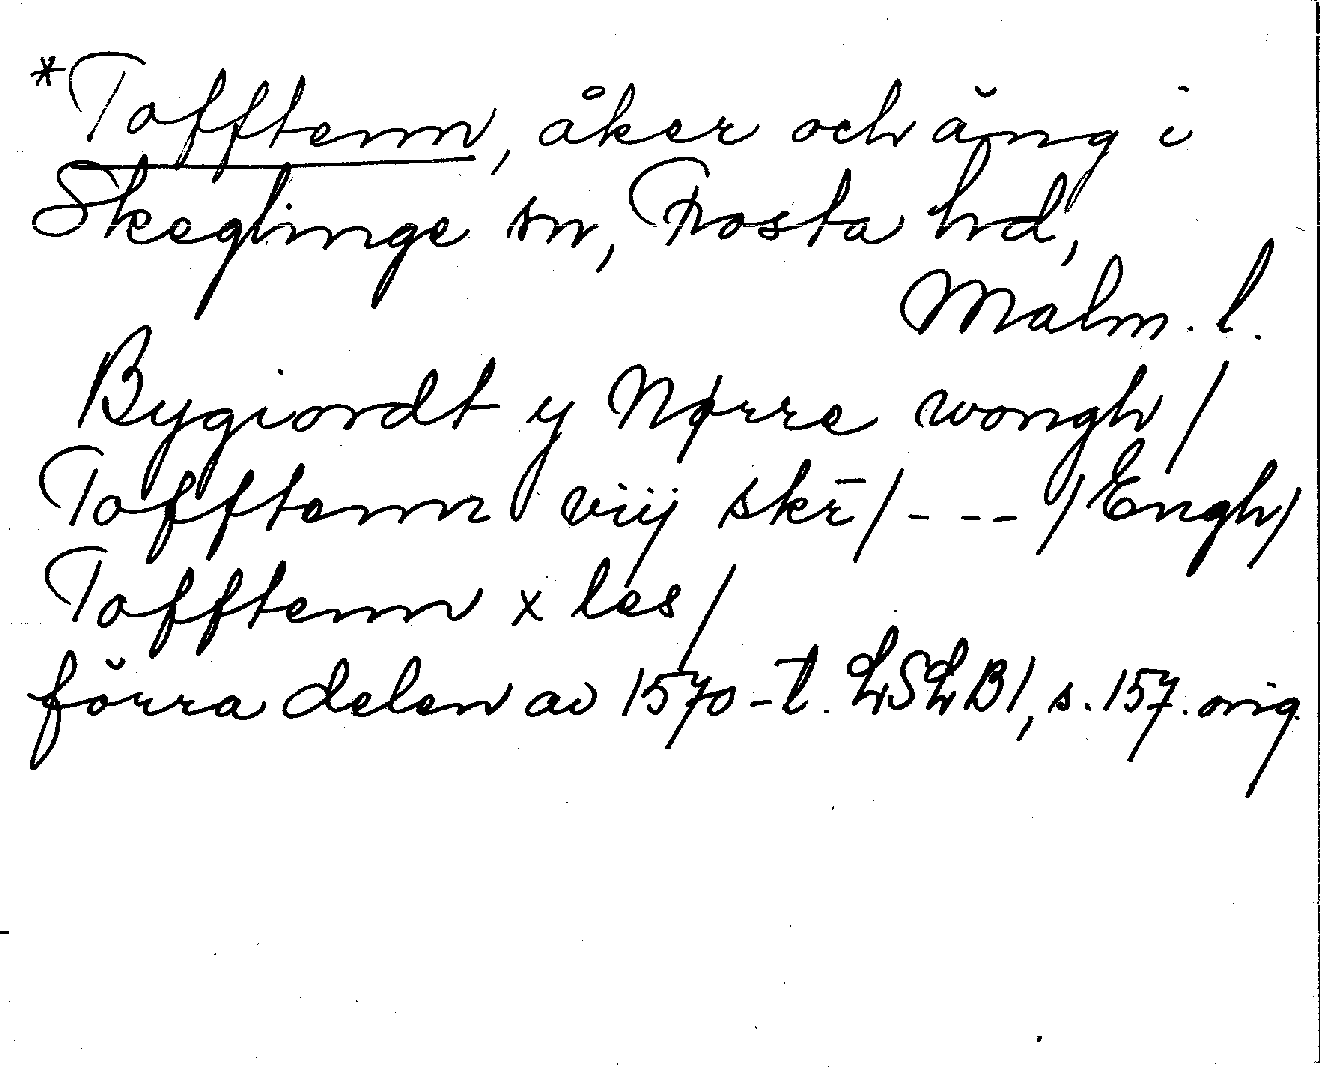 *Tofftenn, åker och äng i
Skeglinge sn, Frosta hd,
Malm. l.
Bygiordt y Nørre wongh/
Tofftenn viij skr̄/---/Engh/
Tofftenn x les/
förra delen av 1570-t. LSLB1, s. 157. orig.